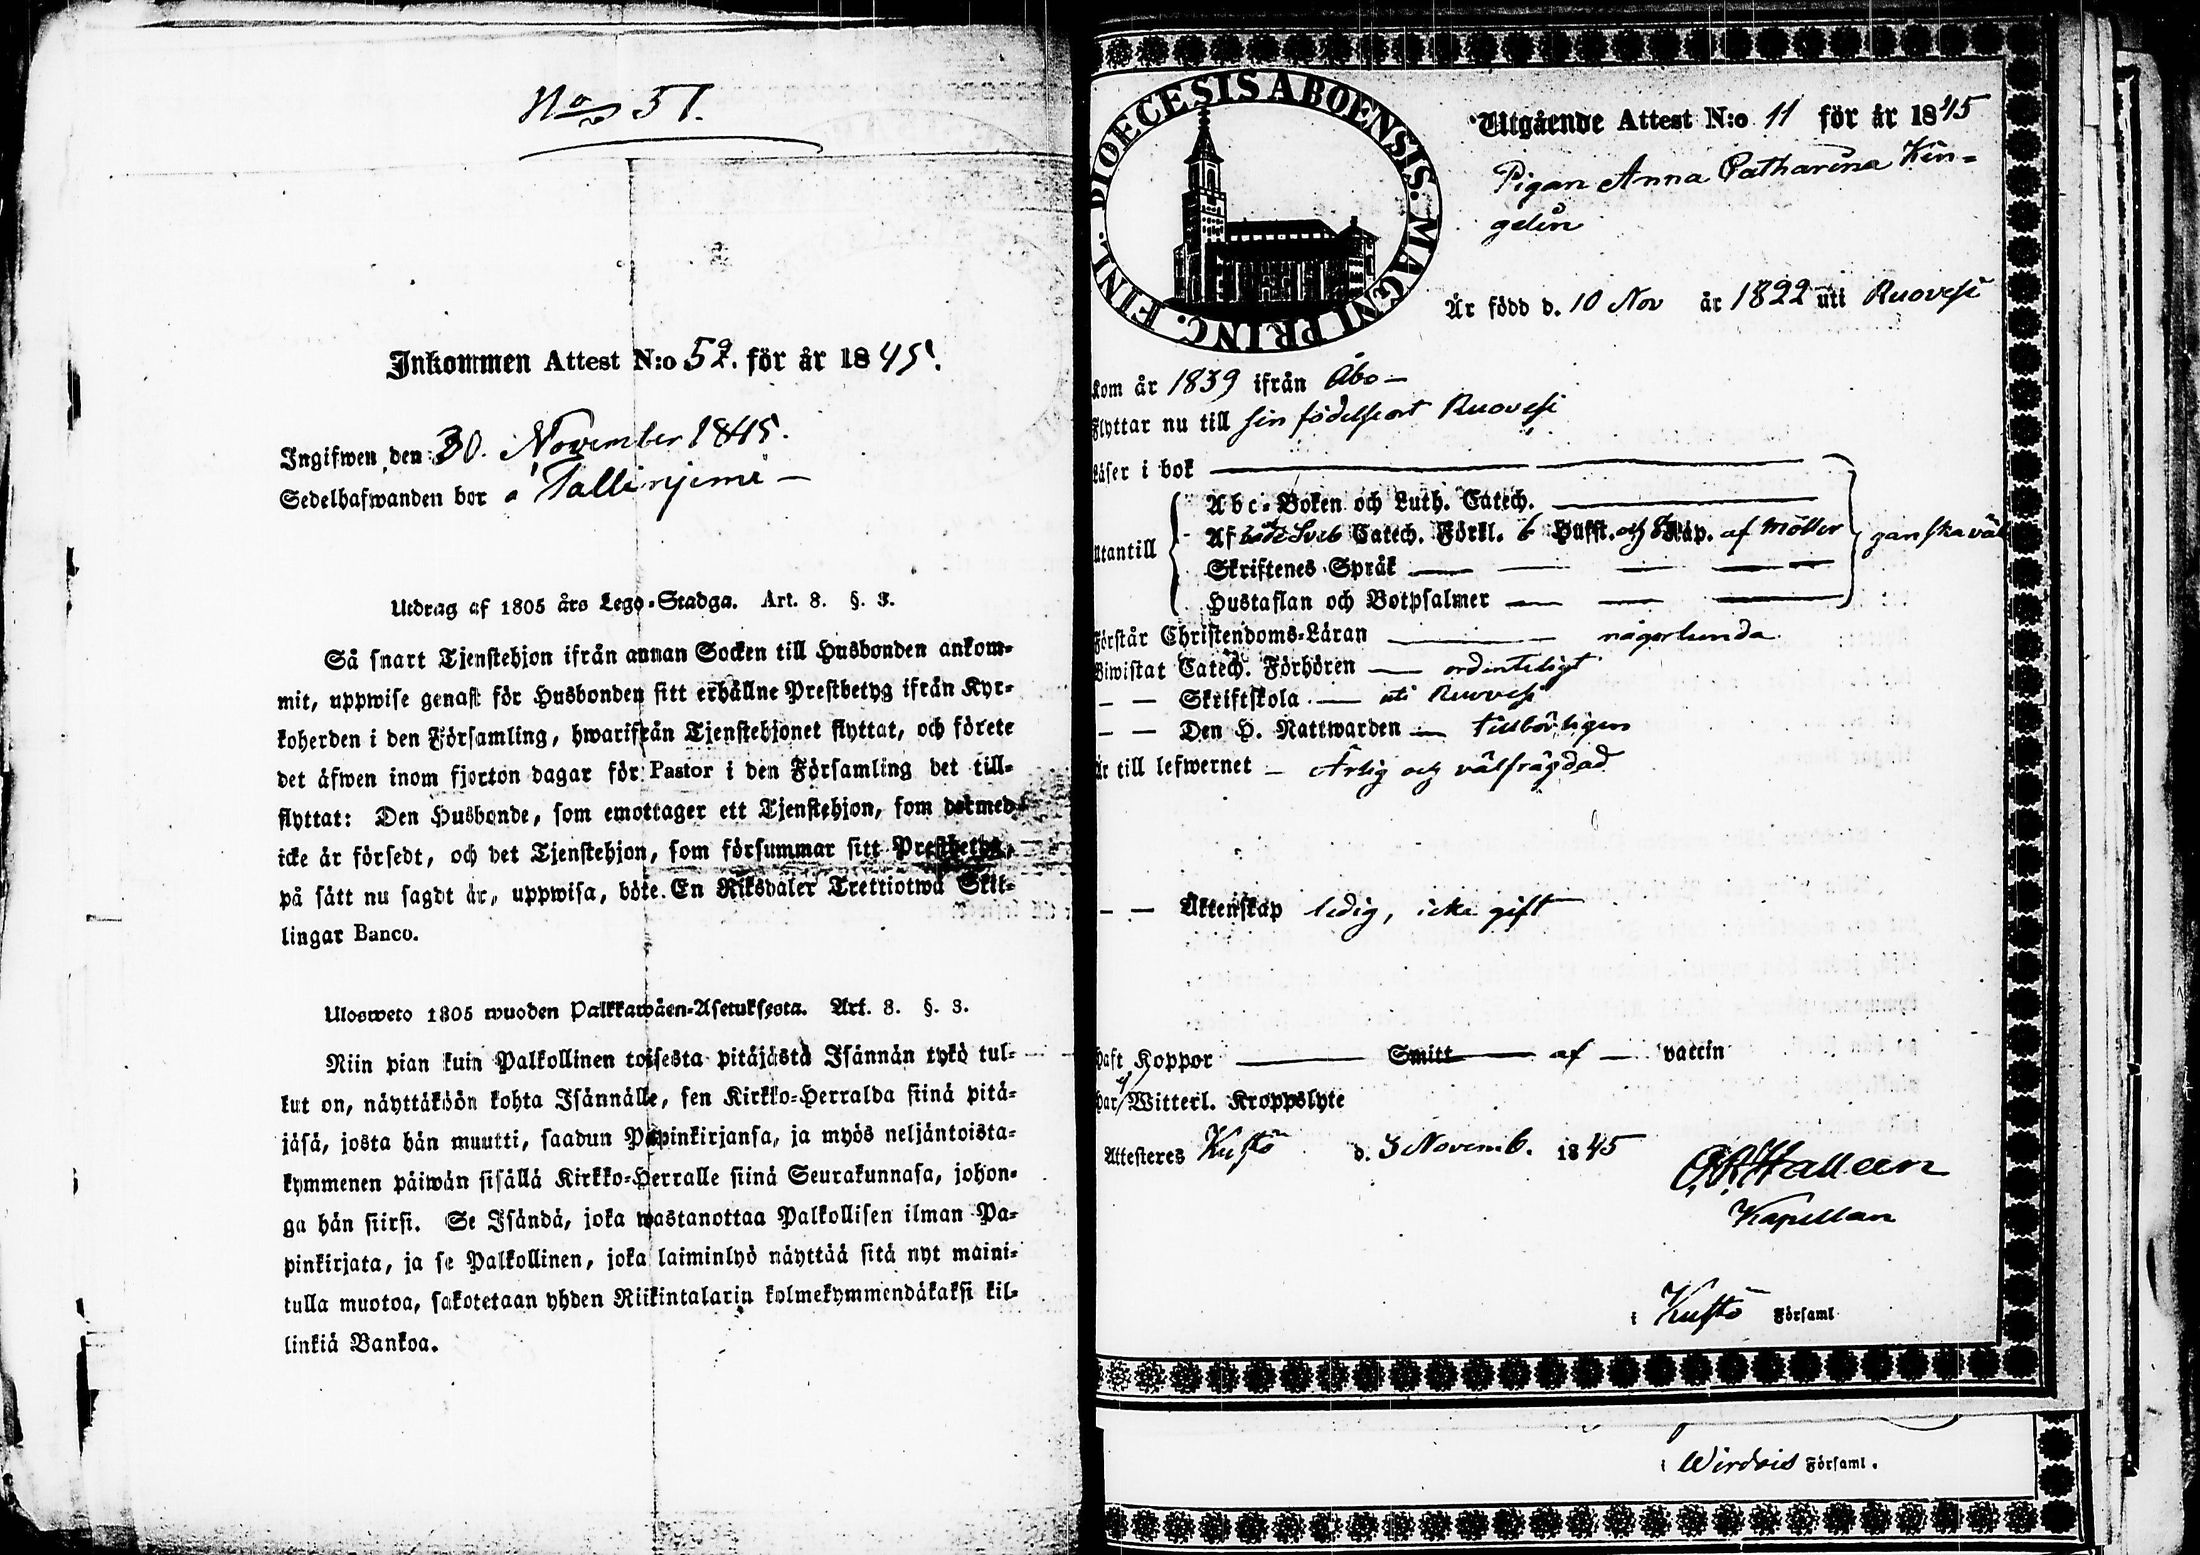 No 51.
Inkommen Attest N:o 52. för år 1845.
Ingifwen den 30. November 1845.
Sedelhafwanden bor å Tallinjemi —
Utdrag af 1805 års Lego-Stadga. Art. 8. §. 3.
Så snart Tjenstehjon ifrån annan Socken till Husbonden ankom-
mit, uppwise genast för Husbonden sitt erhållne Prestbetyg ifrån Kyr-
koherden i den Församling, hwarifrån Tjenstehjonet flyttat, och förete
det äfwen inom fjorton dagar för Pastor i den Församling det till-
flyttat: Den Husbonde, som emottager ett Tjenstehjon, som dermed
icke är försedt, och det Tjenstehjon, som försummar sitt Prestbetyg,
på sätt nu sagdt är, uppwisa, böte En Riksdaler Trettiotwå Skil-
lingar Banco.
Ulosweto 1805 wuoden Palkkawäen-Asetuksesta. Art. 8. §. 3.
Niin pian kuin Palkollinen toisesta pitäjästä Isännän tykö tul-
kut on, näyttäköön kohta Isännälle, sen Kirkko-Herralda siinä pitä-
jäsä, josta hän muutti, saadun Papinkirjansa, ja myös neljäntoista-
kymmenen päiwän sisällä Kirkko-Herralle siinä Seurakunnasa, johon-
ga hän siirsi. Se Isändä, joka wastanottaa Palkollisen ilman Pa-
pinkirjata, ja se Palkollinen, joka laiminlyö näyttää sitä nyt maini-
tulla muotoa, sakotetaan yhden Riikintalarin kolmekymmendäkaksi kil-
linkiä Bankoa.
DIOECESIS ABOENSIS. MAGNI PRINC. FINL.
Utgående Attest N:o 11 för år 1845
Pigan Anna Catharina Kin-
gelin
Är född d. 10 Nov år 1822 uti Ruovesi
kom år 1839 ifrån Åbo —
Flyttar nu till sin födelseort Ruovesi
Läser i bok
Abc-Boken och Luth. Catech.
Utantill
Af både Sveb Catech. Förkl. 6 Hufst. och Kap. af Möller ganska väl
Skriftenes Språk
Hustaflan och Botpsalmer
Förstår Christendoms-Läran någorlunda
Biwistat Catech. Förhören — ordenteligt
— — Skriftskola — uti Ruovesi
— — Den H. Nattwarden — tillbörligen
Är till lefwernet — Ärlig och välfrägdad
— — Äktenskap ledig, icke gift
Haft Koppor Smitt af — vaccin
Har Witterl. Kroppslyte
Attesteres Kustö d. 3 Novemb. 1845
Halleen
Kapellan
i Kustö Församl
i Wirdois Församl.